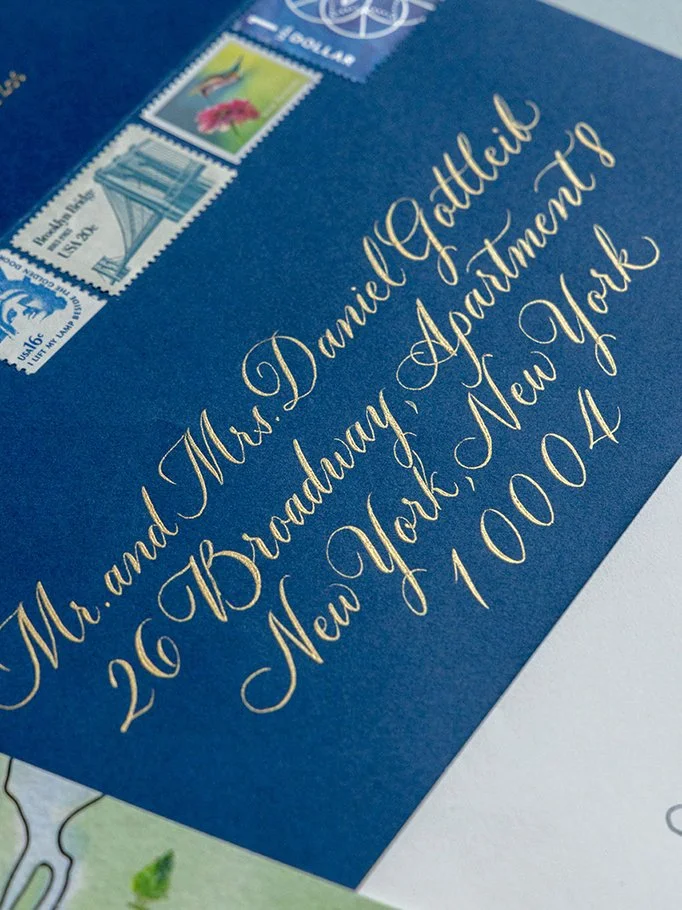 1
DOLLAR
Brooklyn Bridge
USA 20c
BESIDE THE GOLDEN DOOR
USA16c
I LIFT MY LAMP
Mr. and Mrs. Daniel Gottleib
26 Broadway, Apartment 8
New York, New York
10004